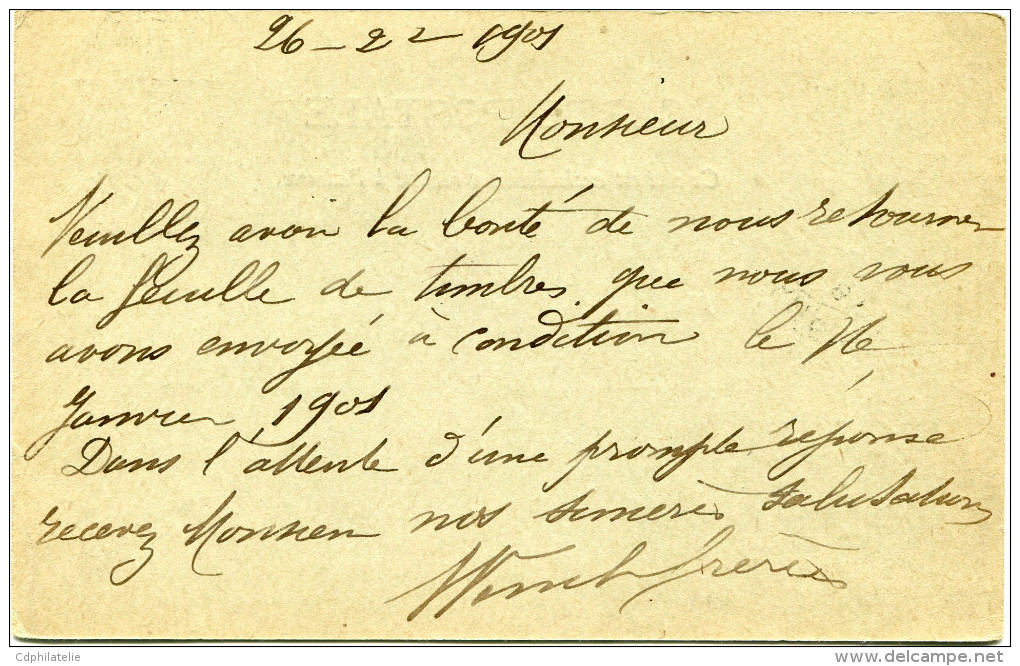 26 - 2 2 - 1901
Monsieur
Veuillez avoir la bonté de nous retourner
la feuille de timbres que nous vous
avons envoyée à condition le 16
Janvier 1901
Dans l'attente d'une prompte réponse
recevez Monsieur nos sincères salutations
frères
Cdphilatelie
delcampe.net